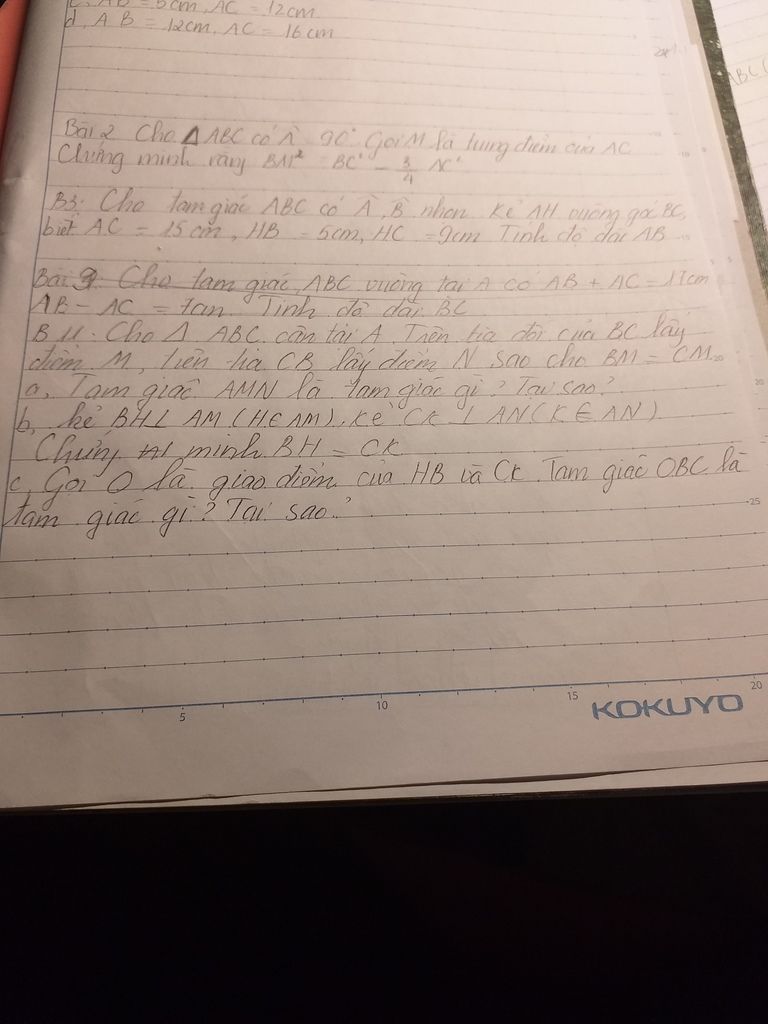 c, AB = 5cm, AC = 12cm
d, AB = 12cm, AC = 16cm
Bài 2 Cho Δ ABC có Â 90° Gọi M là tung điểm của AC
Chứng minh rằng BM² = BC² - 3/4 AC²
B3: Cho tam giác ABC có Â, B nhọn Kẻ AH vuông góc BC,
biết AC = 15cm, HB = 5cm, HC = 9cm Tính độ dài AB
Bài 3: Cho tam giác ABC vuông tại A có AB + AC = 17cm
AB - AC = Tính độ dài BC
B 4: Cho Δ ABC cân tại A. Trên tia đối của BC lấy
điểm M, trên tia CB lấy điểm N sao cho BM = CM
a, Tam giác AMN là tam giác gì? Tại sao?
b, kẻ BH⊥ AM (H∈AM), Kẻ CK ⊥ AN (K∈AN)
Chứng minh BH = CK
c, Gọi O là giao điểm của HB và CK. Tam giác OBC là
tam giác gì? Tại sao?
5 10 15 20
25
KOKUYO